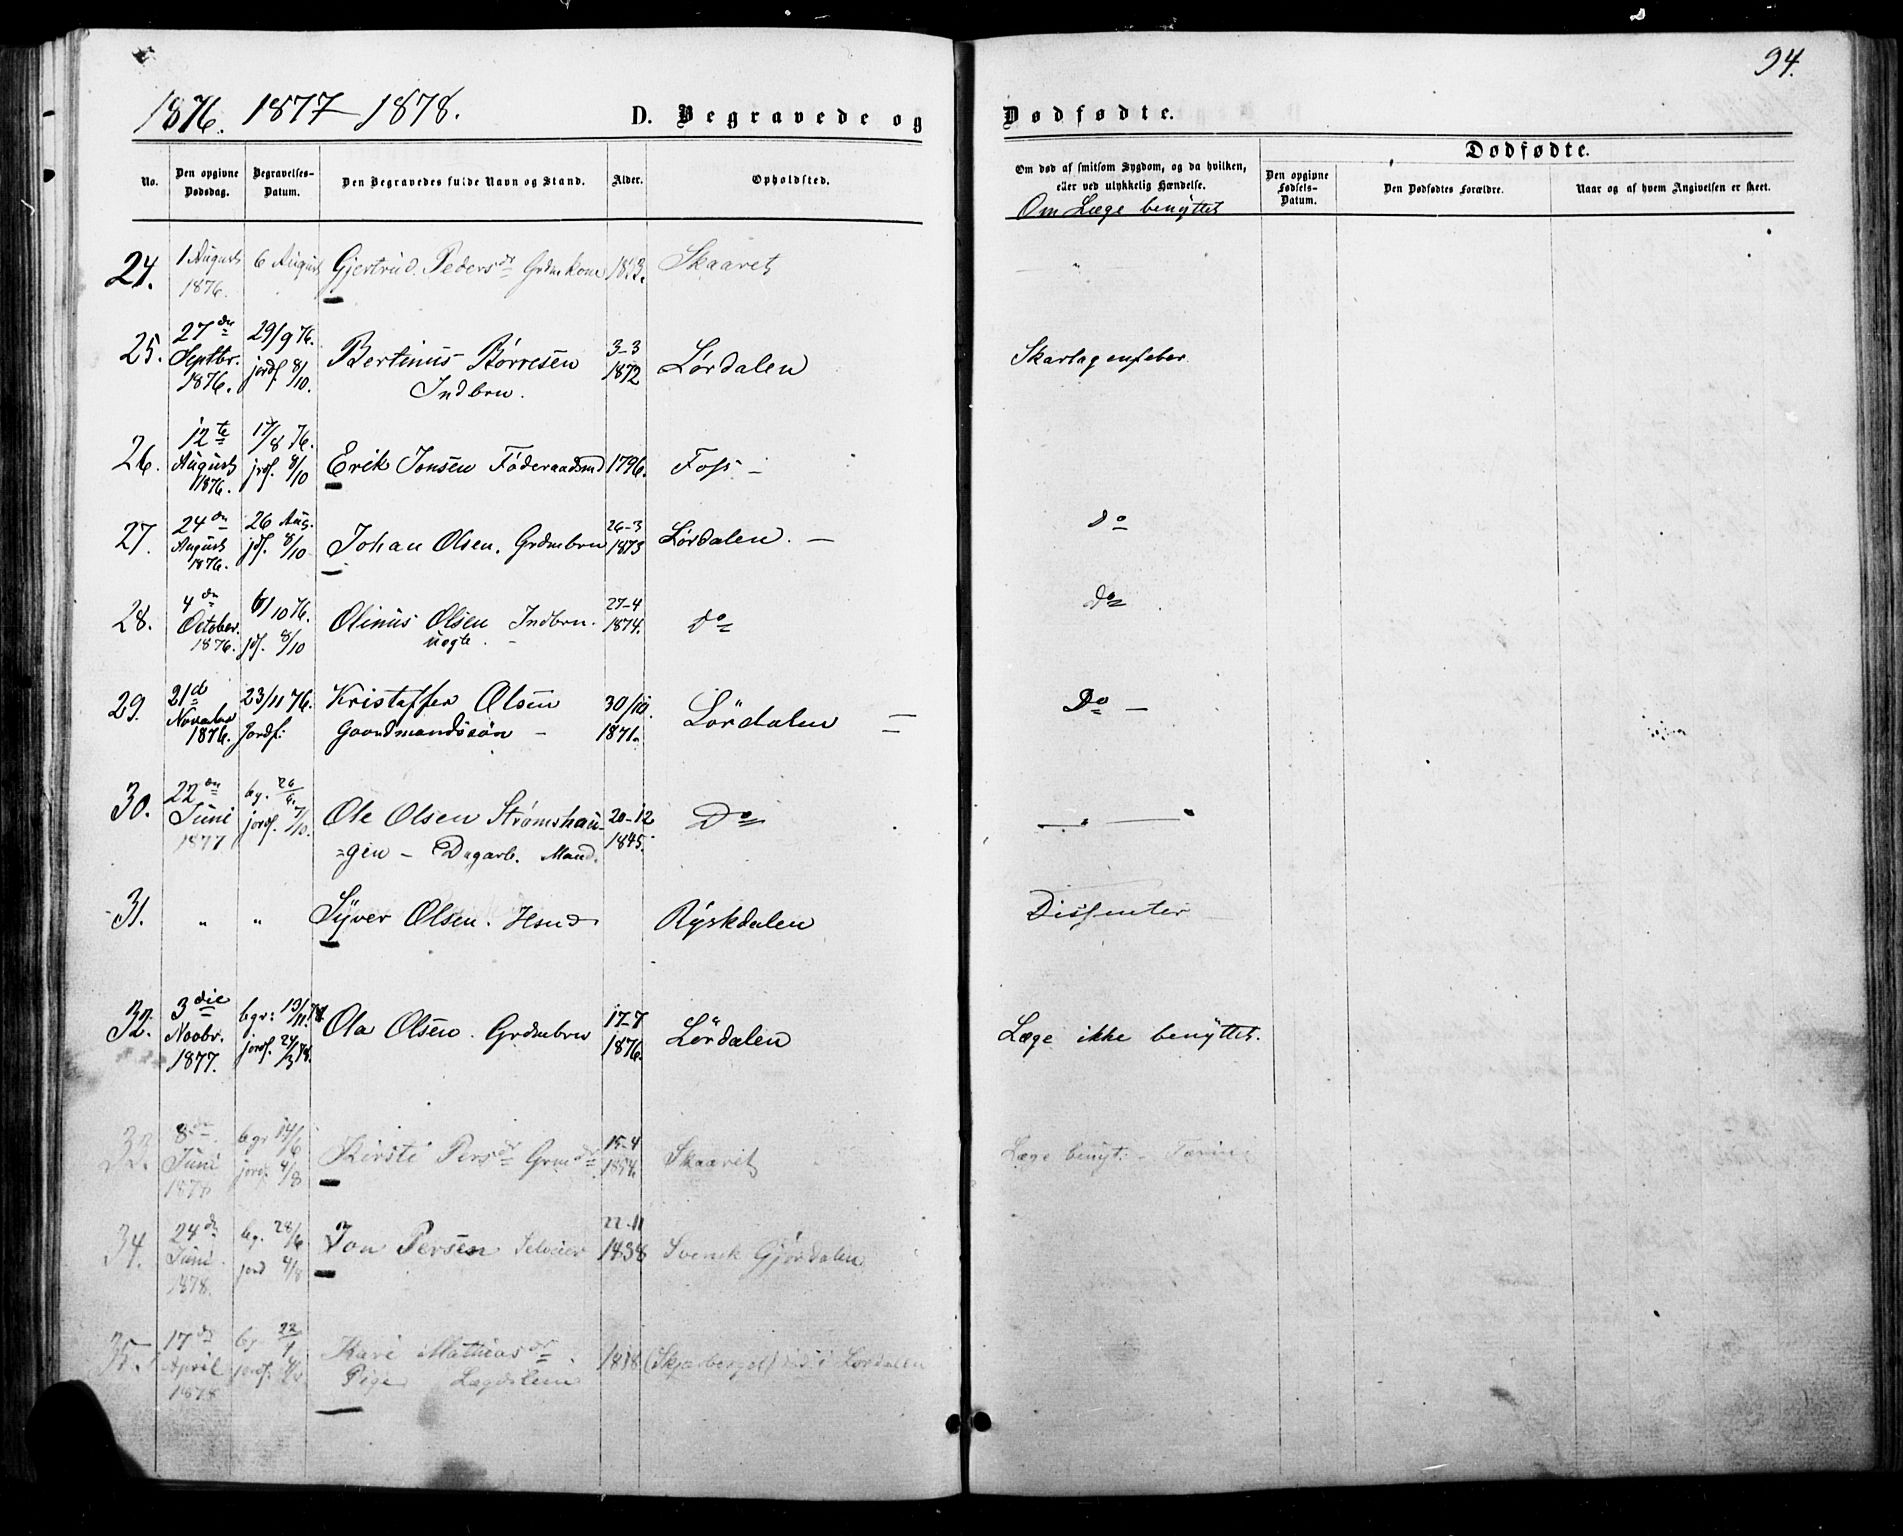 94.
1876. 1877–1878.
D. Begravede og Dødfødte.
No.
Den opgivne Dødsdag.
Begravelses-Datum.
Den Begravedes fulde Navn og Stand.
Alder.
Opholdsted.
Om død af smitsom Sygdom, og da hvilken,
eller ved ulykkelig Hændelse.
Om Læge benyttet
Dødfødte.
Den opgivne Fødsels-Datum.
Den Dødfødtes Forældre.
Naar og af hvem Angivelsen er skeet.
24. 1 August 6 August Gjertrud Pedersdr Grdmkone Skaaret "
1876.
25. 27de 29/9 76. Bertinus Børresen 3–3 Lørdalen Skarlagensfeber
Septbr. jordf. 8/10. Indbrn. 1872
1876.
26. 12te 17/8 76. Erik Jonsen Føderaadsmd 1796. Foss –
August jrdf. 8/10
1876.
27. 24de 26 Aug. Johan Olsen. Grdmbrn 26–3 Lørdalen. – Do
August jdf. 8/10 1873
1876.
28. 4de 10 76. Olinus Olsen Indbrn. 27–4 Do Do
October jdf. 8/10 uægte. 1874.
1876.
29. 21de 23/11 76. Kristoffer Olsen 30/10. Lördalen Do –
November Jordf: Gaardmandssön – 1871.
1876.
30. 22de bg. 26/6. Ole Olsen Strømshau- 20–12 Do
Juni jordf. 7/10. gen – Dagarb. Mand. 1845.
1877
31. " " Syver Olsen. Hsmd Ryskdalen Dissenter
32. 3die begr: 13/11. Ola Olsen. Grdmbrn 17–7 Lørdalen Læge ikke benyttet.
Novbr. jordf. 24/3 78. 1876.
1877.
33. 8de begr 14/6 Kirsti Persdr 15–4 Skaaret Læge benyt. –
Juni jord. 4/8
1878
34. 24de bg. 28/6 Jon Persen Selveier 22–11 Svensk Gjørdalen
Juni jord 4/8 1838
1878.
35. 17de bg 22/4 Kari Mathiasdr 1818 (Skjærberget) i Lørdalen
April jordf. Pige Lægdslem
1878